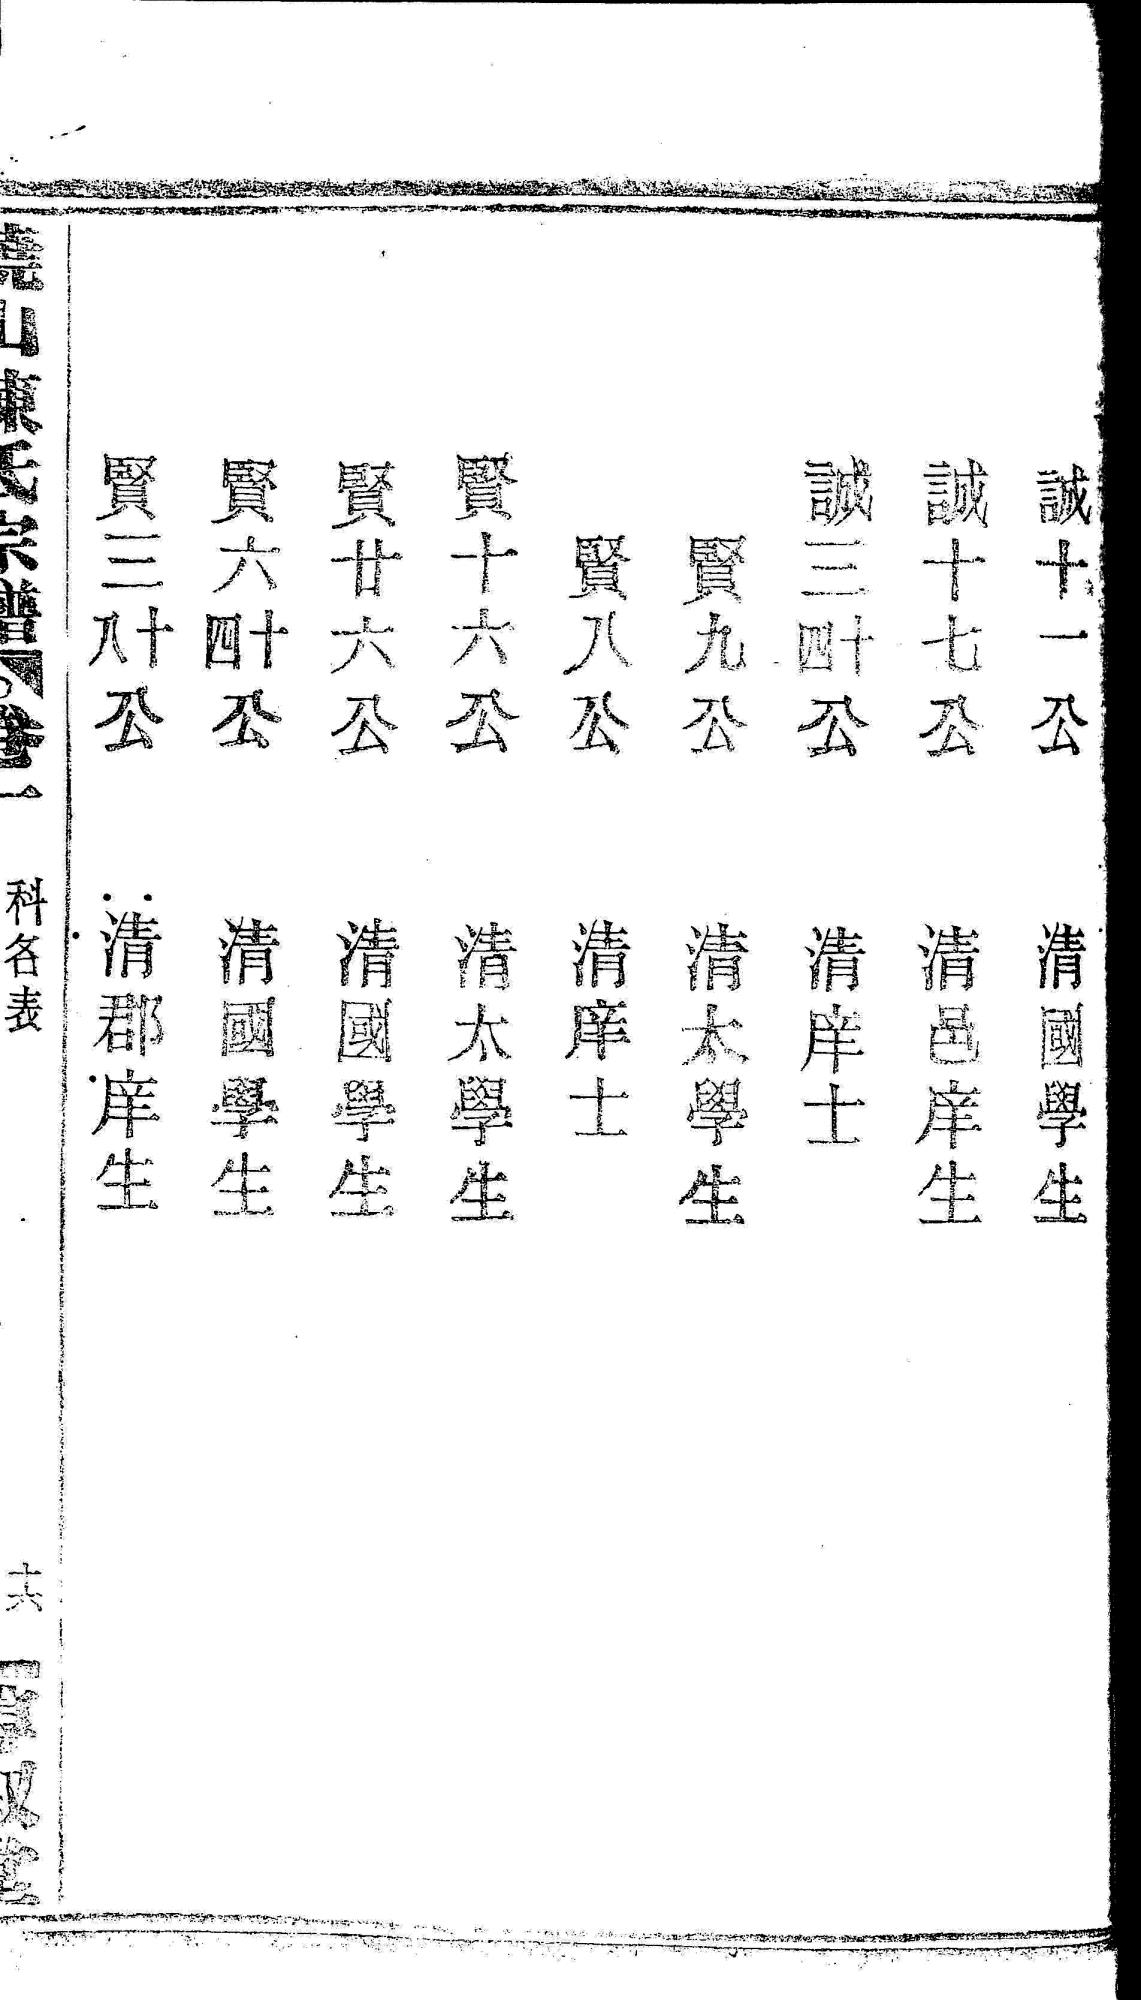 誠十一公 清國學生
誠十七公 清邑庠生
誠三十四公 清庠士
賢九公 清太學生
賢八公 清庠士
賢十六公 清太學生
賢廿六公 清國學生
賢六十四公 清國學生
賢三十八公 清郡庠生
山陳氏宗譜 卷一 科名表 十六 堂